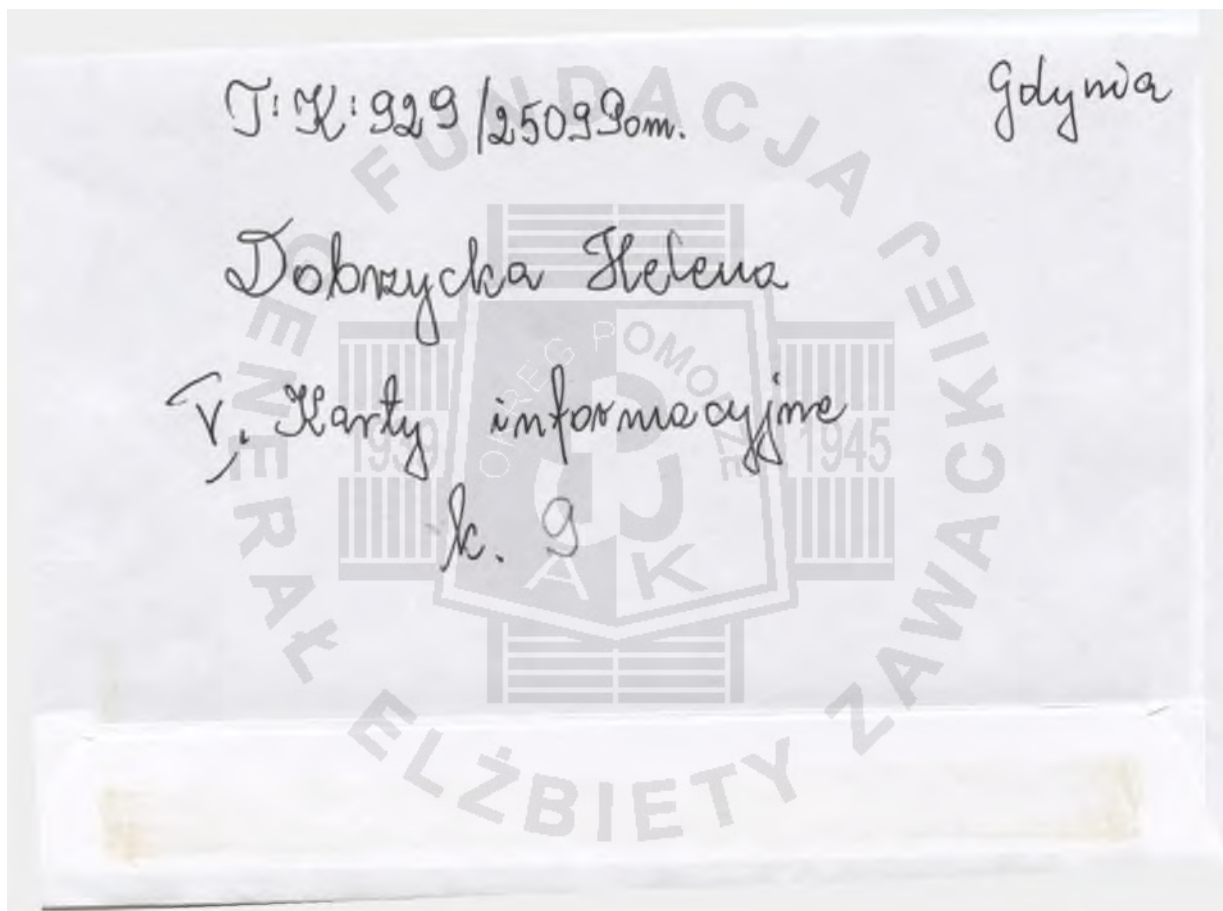 T:K:929/2509 Pom.
Gdynia
Dobrzycka Helena
V. Karty informacyjne
k. 9
FUNDACJA GENERAŁ ELŻBIETY ZAWACKIEJ
OKRĘG POMORZE
1939
1945
AK